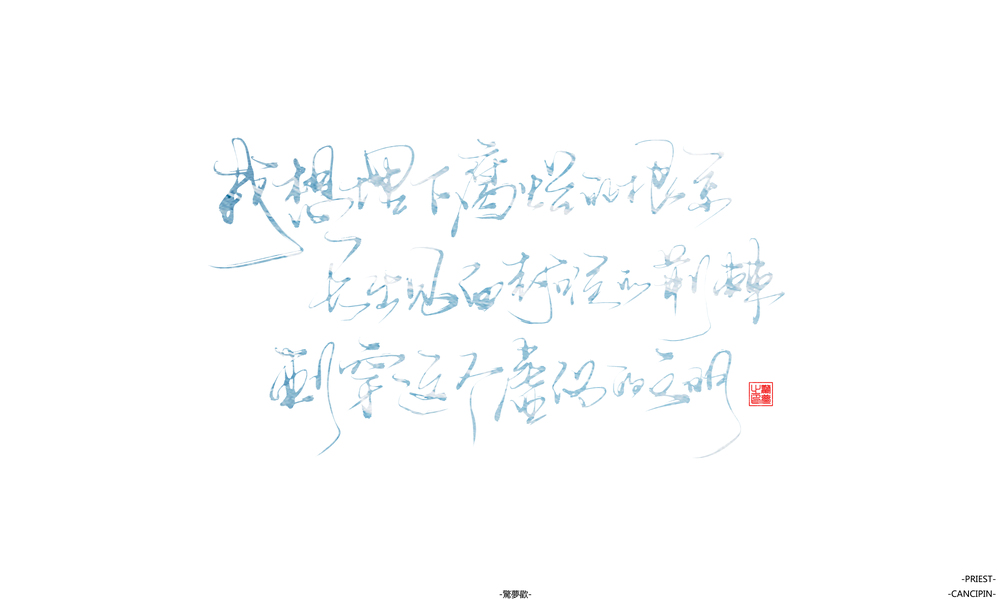 我想埋下腐烂的根系
长出见血封喉的荆棘
刺穿这个虚伪的文明
-PRIEST-
-驚夢歡-
-CANCIPIN-